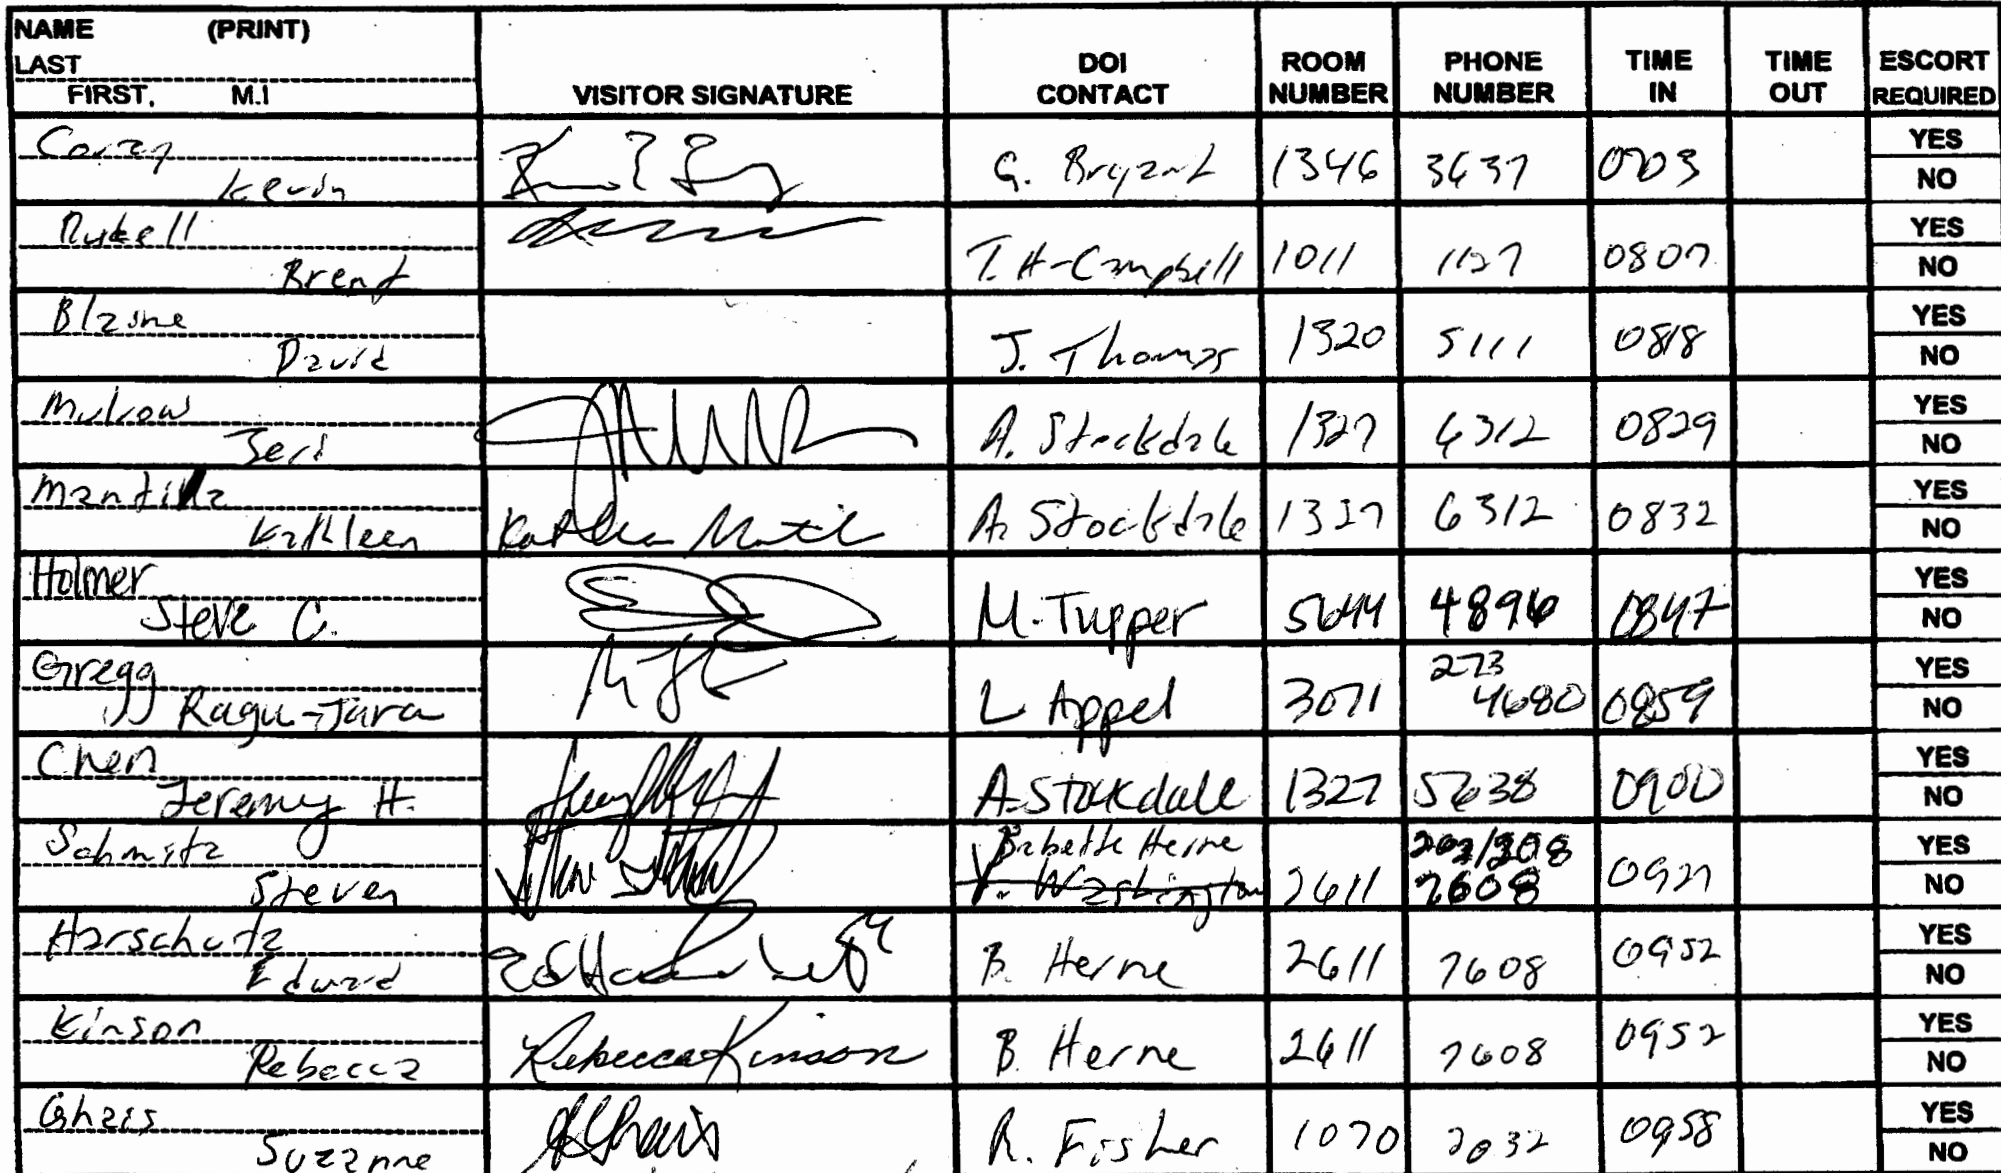 NAME (PRINT)
LAST
FIRST, M.I
VISITOR SIGNATURE
DOI CONTACT
ROOM NUMBER
PHONE NUMBER
TIME IN
TIME OUT
ESCORT REQUIRED
Kevin G. Bryant 1346 3637 0703 YES NO
Brent T. H-Campbell 1011 1127 0807 YES NO
David J. Thomas 1320 5111 0818 YES NO
Mulkow Jeri A. Stockdale 1327 6312 0829 YES NO
Mantilla Kathleen A. Stockdale 1327 6312 0832 YES NO
Holmer Steve C. M. Tupper 5644 4896 0847 YES NO
Gregg Ragu-Jara L Appel 3071 273 4680 0859 YES NO
Chen Jeremy H. A. Stockdale 1327 5638 0900 YES NO
Schmitz Steven Babette Herne V. Washington 2611 202/208 7608 0927 YES NO
Harschutz Edward B. Herne 2611 7608 0952 YES NO
Kinson Rebecca Rebecca Kinson B. Herne 2611 7608 0952 YES NO
Ghais Suzanne R. Fisher 1070 2032 0958 YES NO